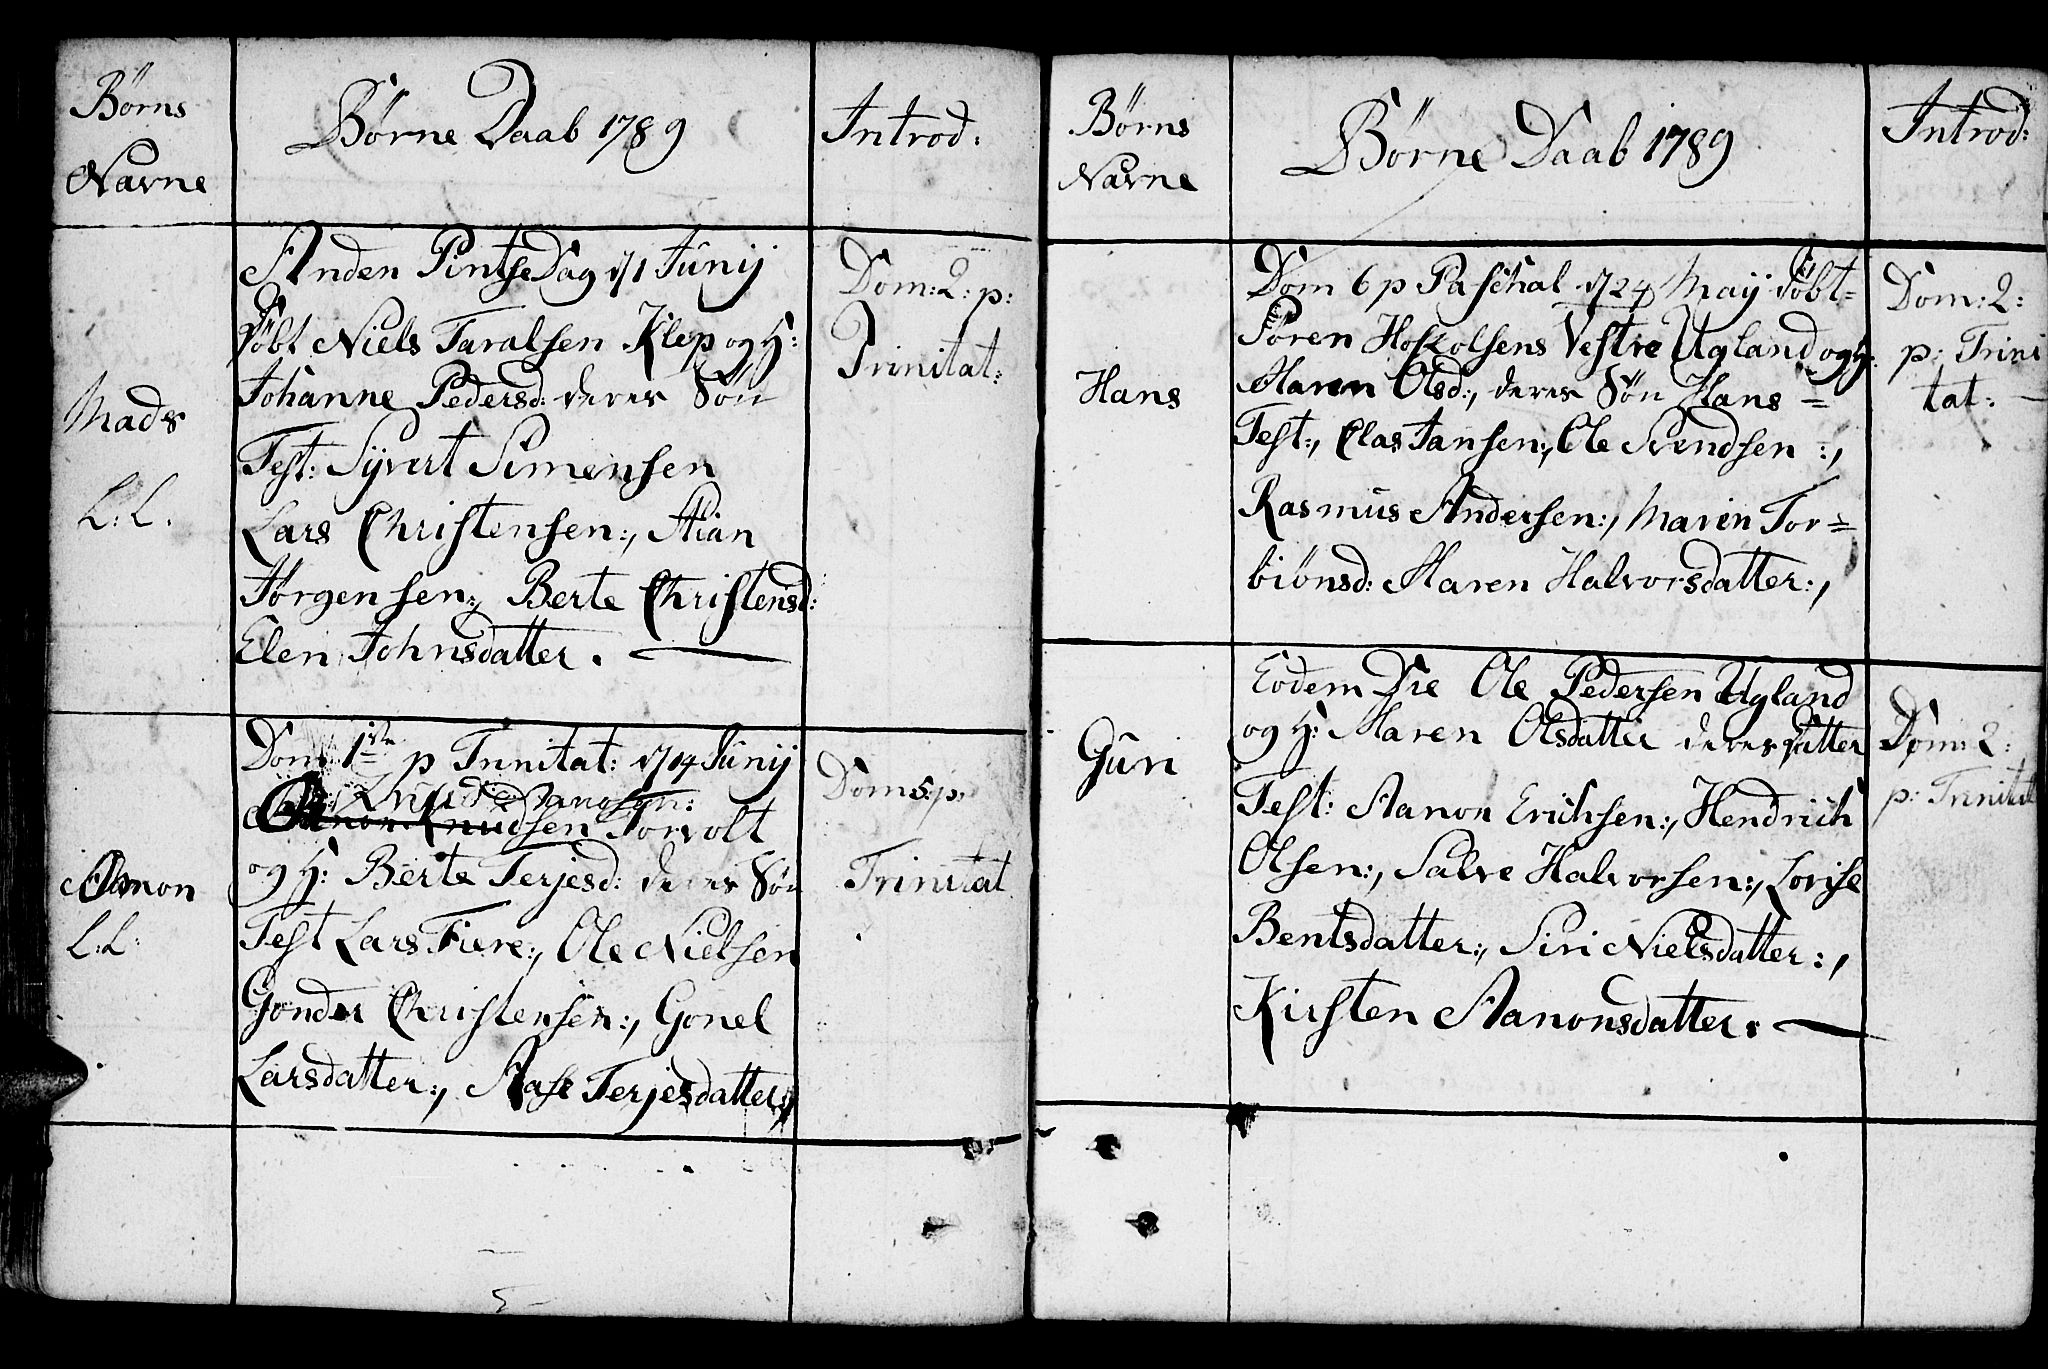 Børns
Navne
Børne Daab 1789
Introd:
Mads
L: L.
Anden PintseDag d/1 Junij
døbt Niels Taralsen Klep og H:
Johanne Pedersd: deres Søn
Test: Syvert Simensen
Lars Christensen:, Stian
Jørgensen:, Berte Christensd:
Elen Johnsdatter.
Dom: 2: p:
Trinitat:
Aanon
L: L:
Dom: 1ste p Trinitat: d/14 Junij
Knud Aanonsen:
Aanon Knudsen Torvolt
og H: Berte Terjesd: deres Søn
Test Lars Fiere:, Ole Nielsen
Gonder Christensen:, Gonel
Larsdatter:, Aase Terjesdatter
Dom 5: p:
Trinitat
Børns
Navne
Børne Daab 1789
Introd:
Hans
Dom 6 p Paschal d/24 May døbt
Søren Hoskolsens Vestre Ugland og H:
Maren Olsd:, deres Søn Hans
Test:, Clas Jansen:, Ole Svendsen:,
Rasmus Andersen:, Maren Tor=
biønsd: Maren Halvorsdatter:,
Dom: 2:
p: Trini
tat:
Guri
Eodem Die Ole Pedersen Ugland
og H: Maren Olsdatter deres datter
Test: Aanon Erichsen:, Hendrich
Olsen:, Salve Halvorsen:, Lovise
Bentsdatter:, Siri Nielsdatter:,
Kirsten Aanonsdatter:
Dom: 2:
p: Trinitat